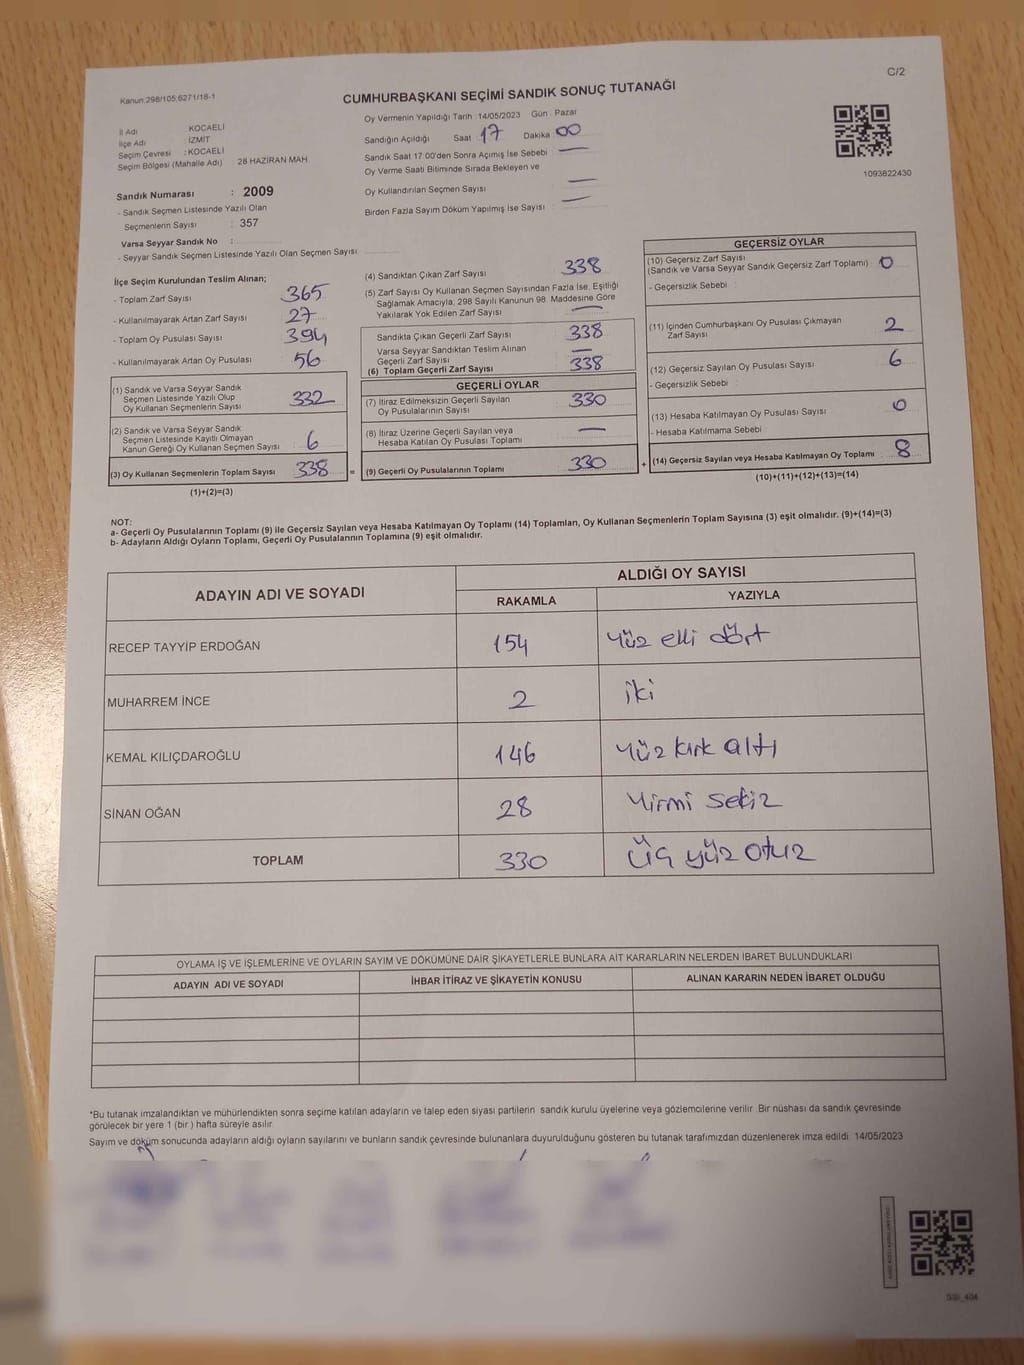 C/2
Kanun:298/105;6271/18-1
CUMHURBAŞKANI SEÇİMİ SANDIK SONUÇ TUTANAĞI
İl Adı : KOCAELİ
İlçe Adı : İZMİT
Seçim Çevresi : KOCAELİ
Seçim Bölgesi (Mahalle Adı) 28 HAZİRAN MAH.
Sandık Numarası : 2009
- Sandık Seçmen Listesinde Yazılı Olan
Seçmenlerin Sayısı : 357
Varsa Seyyar Sandık No :
- Seyyar Sandık Seçmen Listesinde Yazılı Olan Seçmen Sayısı:
Oy Vermenin Yapıldığı Tarih 14/05/2023 Gün Pazar
Sandığın Açıldığı Saat 17 Dakika 00
Sandık Saat 17:00'den Sonra Açımış İse Sebebi —
Oy Verme Saati Bitiminde Sırada Bekleyen ve
Oy Kullandırılan Seçmen Sayısı —
Birden Fazla Sayım Döküm Yapılmış İse Sayısı —
1093822430
İlçe Seçim Kurulundan Teslim Alınan;
- Toplam Zarf Sayısı 365
- Kullanılmayarak Artan Zarf Sayısı 27
- Toplam Oy Pusulası Sayısı 394
- Kullanılmayarak Artan Oy Pusulası 56
(1) Sandık ve Varsa Seyyar Sandık
Seçmen Listesinde Yazılı Olup
Oy Kullanan Seçmenlerin Sayısı 332
(2) Sandık ve Varsa Seyyar Sandık
Seçmen Listesinde Kayıtlı Olmayan
Kanun Gereği Oy Kullanan Seçmen Sayısı 6
(3) Oy Kullanan Seçmenlerin Toplam Sayısı 338 =
(1)+(2)=(3)
(4) Sandıktan Çıkan Zarf Sayısı 338
(5) Zarf Sayısı Oy Kullanan Seçmen Sayısından Fazla İse, Eşitliği
Sağlamak Amacıyla, 298 Sayılı Kanunun 98. Maddesine Göre
Yakılarak Yok Edilen Zarf Sayısı —
Sandıkta Çıkan Geçerli Zarf Sayısı 338
Varsa Seyyar Sandıktan Teslim Alınan
Geçerli Zarf Sayısı —
(6) Toplam Geçerli Zarf Sayısı 338
GEÇERLİ OYLAR
(7) İtiraz Edilmeksizin Geçerli Sayılan
Oy Pusulalarının Sayısı 330
(8) İtiraz Üzerine Geçerli Sayılan veya
Hesaba Katılan Oy Pusulası Toplamı —
(9) Geçerli Oy Pusulalarının Toplamı 330 +
GEÇERSİZ OYLAR
(10) Geçersiz Zarf Sayısı
(Sandık ve Varsa Seyyar Sandık Geçersiz Zarf Toplamı) 0
- Geçersizlik Sebebi :
(11) İçinden Cumhurbaşkanı Oy Pusulası Çıkmayan
Zarf Sayısı 2
(12) Geçersiz Sayılan Oy Pusulası Sayısı 6
- Geçersizlik Sebebi :
(13) Hesaba Katılmayan Oy Pusulası Sayısı 0
- Hesaba Katılmama Sebebi :
(14) Geçersiz Sayılan veya Hesaba Katılmayan Oy Toplamı 8
(10)+(11)+(12)+(13)=(14)
NOT:
a- Geçerli Oy Pusulalarının Toplamı (9) ile Geçersiz Sayılan veya Hesaba Katılmayan Oy Toplamı (14) Toplamları, Oy Kullanan Seçmenlerin Toplam Sayısına (3) eşit olmalıdır. (9)+(14)=(3)
b- Adayların Aldığı Oyların Toplamı, Geçerli Oy Pusulalarının Toplamına (9) eşit olmalıdır.
ADAYIN ADI VE SOYADI ALDIĞI OY SAYISI
RAKAMLA YAZIYLA
RECEP TAYYİP ERDOĞAN 154 Yüz elli dört
MUHARREM İNCE 2 iki
KEMAL KILIÇDAROĞLU 146 Yüz kırk altı
SİNAN OĞAN 28 Yirmi sekiz
TOPLAM 330 Üç yüz otuz
OYLAMA İŞ VE İŞLEMLERİNE VE OYLARIN SAYIM VE DÖKÜMÜNE DAİR ŞİKAYETLERLE BUNLARA AİT KARARLARIN NELERDEN İBARET BULUNDUKLARI
ADAYIN ADI VE SOYADI İHBAR İTİRAZ VE ŞİKAYETİN KONUSU ALINAN KARARIN NEDEN İBARET OLDUĞU
*Bu tutanak imzalandıktan ve mühürlendikten sonra seçime katılan adayların ve talep eden siyasi partilerin sandık kurulu üyelerine veya gözlemcilerine verilir. Bir nüshası da sandık çevresinde
görülecek bir yere 1 (bir) hafta süreyle asılır.
Sayım ve döküm sonucunda adayların aldığı oyların sayılarını ve bunların sandık çevresinde bulunanlara duyurulduğunu gösteren bu tutanak tarafımızdan düzenlenerek imza edildi. 14/05/2023